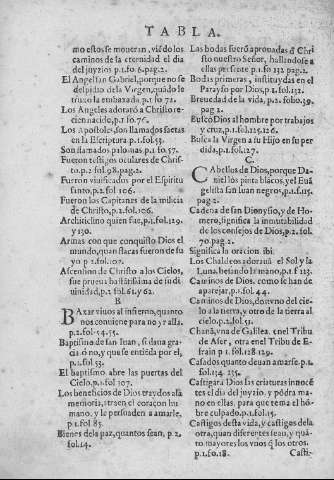 TABLA.
mo estos se moueran, viẽdo los
caminos de la eternidad el dia
del juyzio p.1 fo.6.pag.2.
El Angel san Gabriel, porque no se
despidio de la Virgen, quãdo le
truxo la embaxada p.1 fo 72.
Los Angeles adorarõ a Christo re-
cien nacido, p.1 fo.76.
Los Apostoles, son llamados saetas
en la Escriptura p.1.fol.53.
Son llamados palomas p.1 fo.57.
Fueron testigos oculares de Chris-
to, p.2 fol.98.pag.2.
Fueron viuificados por el Espiritu
santo, p.2 fol.106.
Fueron los Capitanes de la milicia
de Christo, p.2 fol.106.
Architiclino quien fue, p.1 fol.129.
y 130.
Armas con que conquisto Dios el
mundo, quan flacas fueron de su
yo p.2 fol.107.
Ascension de Christo a los Cielos,
fue prueua bastãtissima de su di
uinidad, p.2 fol.61.y 62.
B
BAxar viuos al infierno, quanto
nos conuiene para no yr alla.
p.2 fol.54.55.
Baptismo de san Juan, si daua gra-
cia o no, y que se entiẽda por el,
p.1 fol.53.
El baptismo abre las puertas del
Cielo, p.1 fol 107.
Los beneficios de Dios traydos a la
memoria, traen el coraçon hu
mano, y le persuaden a amarle,
p.1 fol 85.
Bienes de la paz, quantos sean, p.2.
fol.14.
Las bodas fuerõ aprouadas d̃ Chri
sto nuestro Señor, hallandose a
ellas presente p.1 fo 132 pag.2.
Bodas primeras, instituydas en el
Parayso por Dios, p.1 fol.132.
Breuedad de la vida, p.2. fol 60.39.
pag.2.
Busco Dios al hombre por trabajos
y cruz, p.1 fol.125.126.
Busca la Virgen a su Hijo en su per
dida, p.1 fol.127.
C.
CAbellos de Dios, porque Da-
niel los pinta blãcos, y el Euã
gelista san Iuan negros, p.1 f.15.
pag.2.
Cadena de san Dionysio, y de Ho-
mero, significa la inmutabilidad
de los consejos de Dios, p.2 fol.
70 pag.2.
Significa la oracion ibi.
Los Chaldeos adorauã el Sol y la
Luna, besando la mano, p.1 f 113.
Caminos de Dios, como se han de
aparejar, p.1 fol.44.
Caminos de Dios, de vno del cie-
lo a la tierra, y otro de la tierra al
cielo, p.2 fol.51.
Chanã, vna de Galilea, en el Tribu
de Aser, otra en el Tribu de E-
frain p.1 fol.128 129.
Casados quanto deuan amarse p.1
fol.134 235.
Castigara Dios las criaturas innocẽ
tes el dia del juyzio, y põdra ma-
no en ellas, para que tema el hõ-
bre culpado, p.1 fol.15.
Castigos desta vida, y castigos de la
otra, quan diferentes sean, y quã-
to mayores los vnos q̃ los otros.
p.1 fo.18.
Casti-